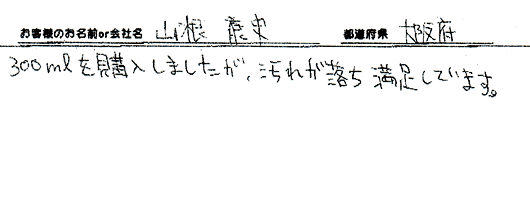 お客様のお名前or会社名 山根 康史 都道府県 大阪府
300mlを購入しましたが、汚れが落ち満足しています。